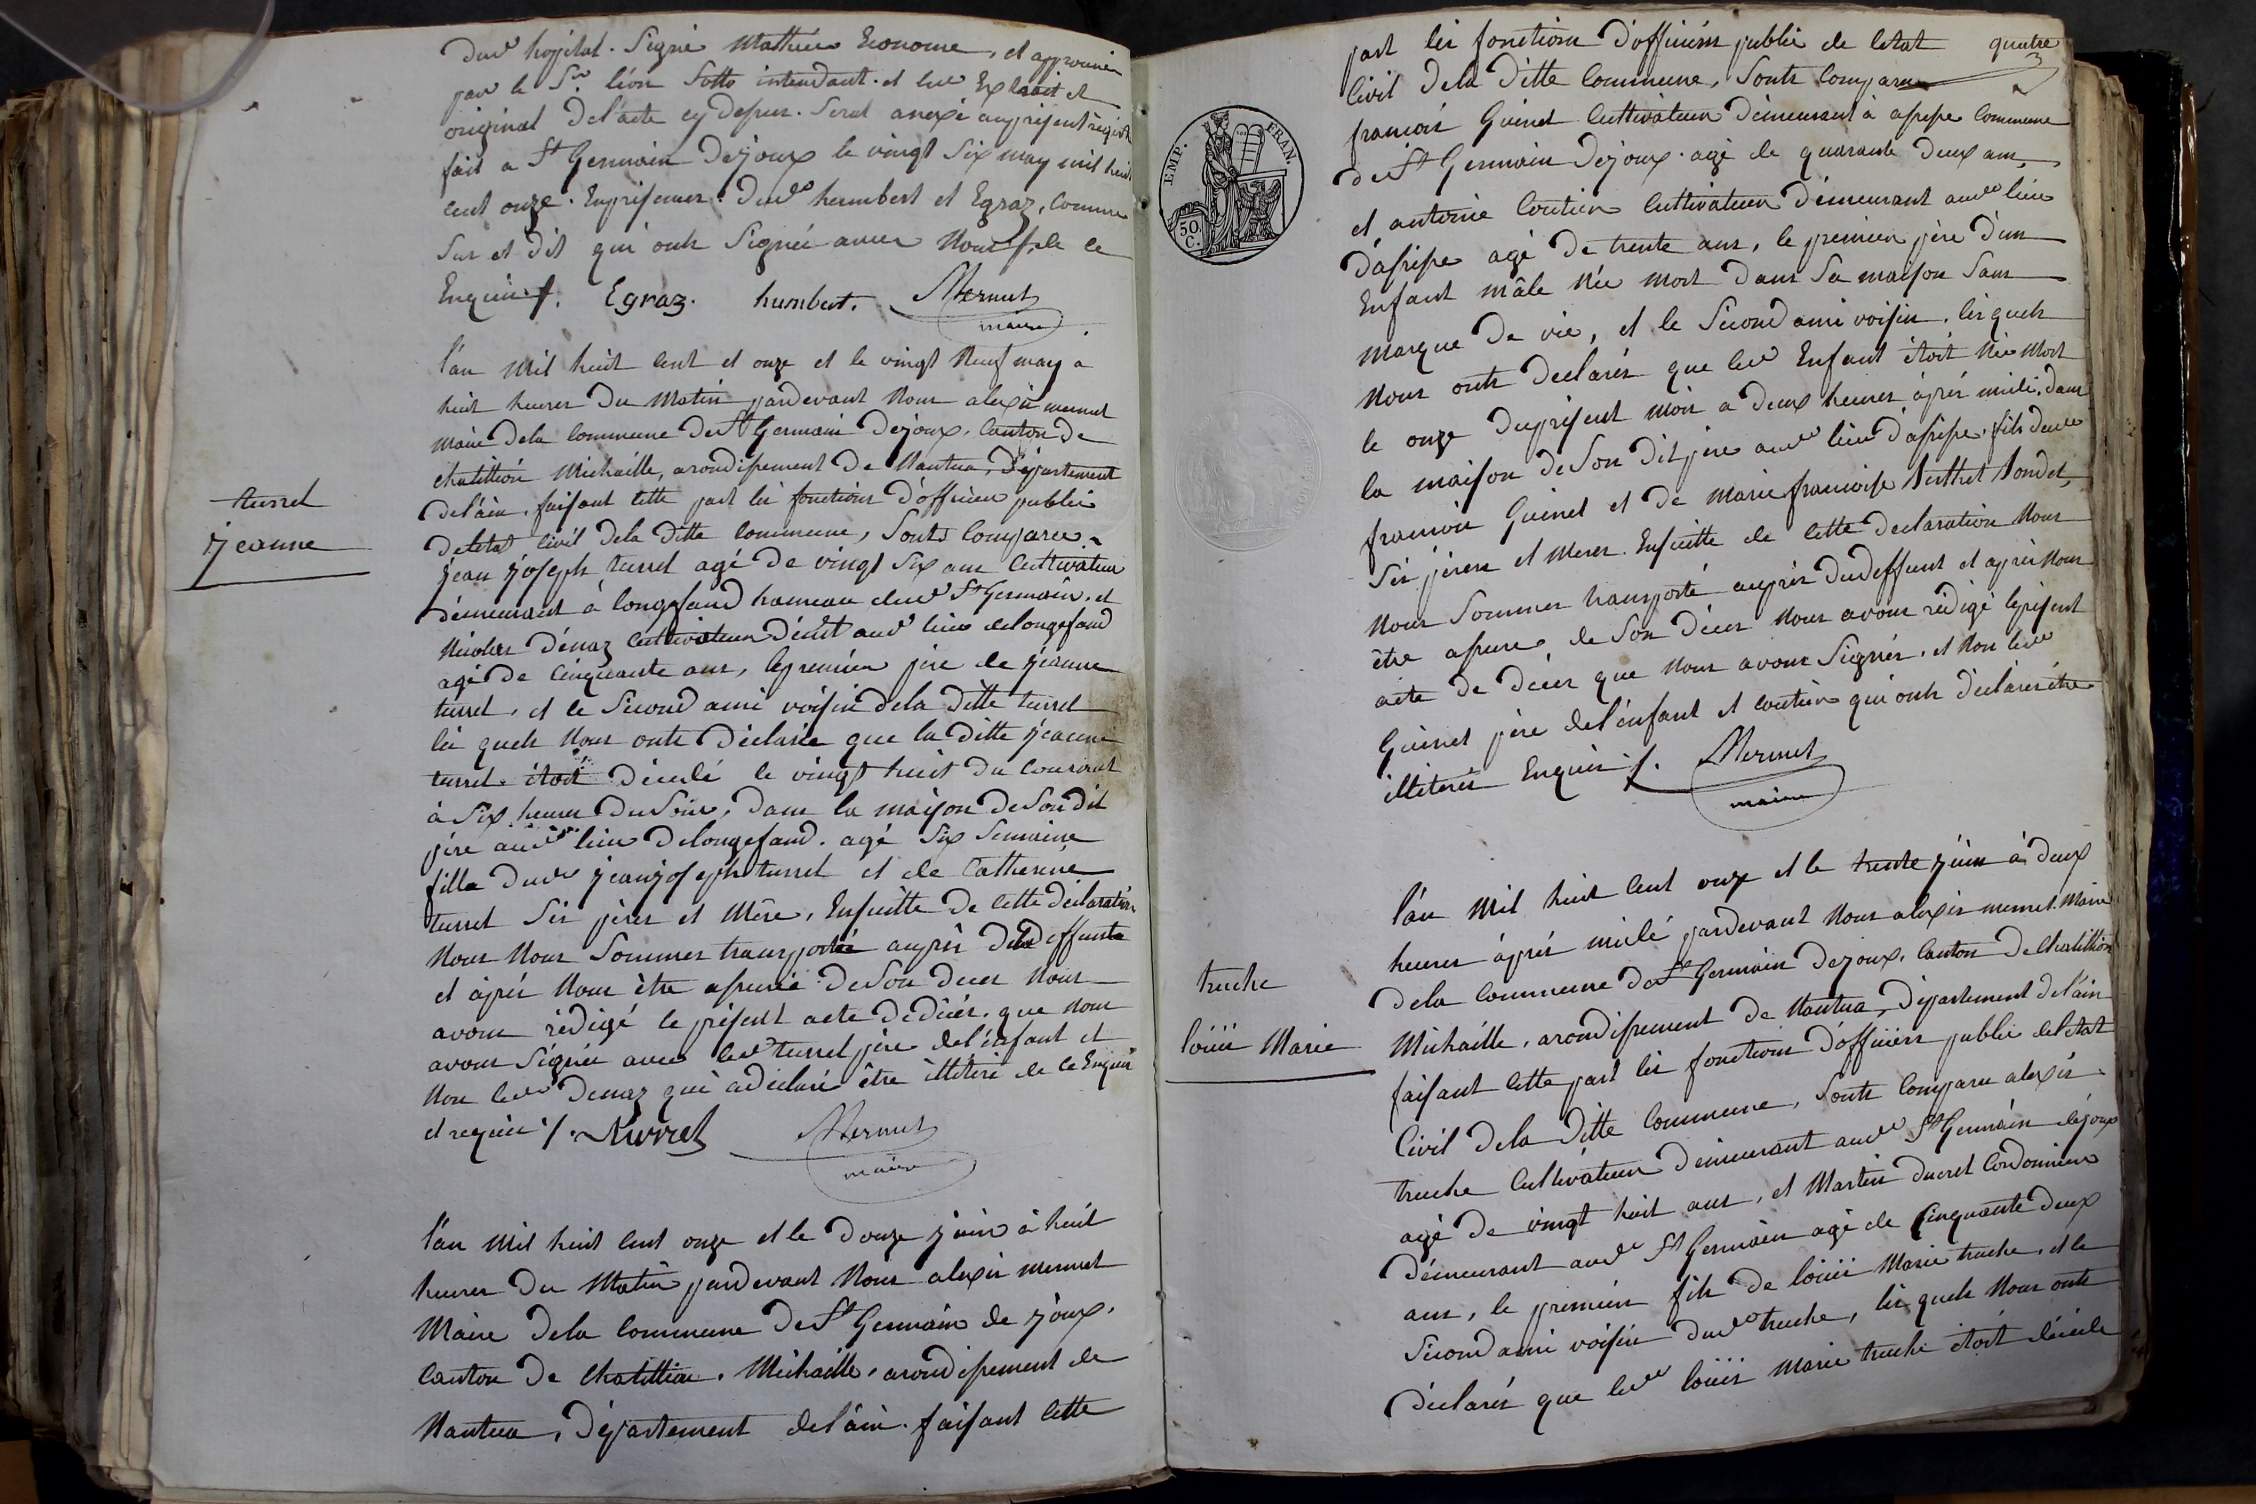 Dud hopital. Signé Mathieu Econome, et approuvé
par le Sr. léon Sotto intendant. et led Extrait et
original Del'acte cy dessus. Serat anexé auprésent régist
fait a St Germain Dejoux le vingt Six may mil huit
cent onze. En présence. Dud humbert et Egraz, Comme
Sus et dit qui onts Signée avec Nous f. de ce
Enquis f. Egraz. humbert. Mermet
maire
l'an Mil huit cent et onze et le vingt Neuf may à
huit heures Du Matin pardevant Nous alexis mermet
maire Dela Commune De St Germain Dejoux, Canton de
chatillion Michaille, arondissement De Nantua, Département
del'ain, faisant cette part les fonctions D'officien public
Deletat Civil Dela Ditte Commune, Sonts Comparu
turrel
Jeanne
Jean Joseph turrel agé De vingt Six ans Cultivateur
Démeurant à longefand hameau dud St Germain, et
Nicolas Dénaz Cultivateur Déut aud lieu de longefand
agé De Cinquante ans, lepremier père de Jeanne
turrel, et le Second ami voisin dela Ditte turrel
les quels Nous onts Déclarée que la Ditte Jeanne
turrel étoit Décedé le vingt huit du Courant
à Six heures Du Soir, Dans la maison De Son dit
père aud lieu Delongefand. agé Six Semaine
fille Dud Jean Joseph turrel et de Catherine
turrel Ses pères et Mère, Ensuitte De cette Déclaration
Nous Nous Sommes transporté auprès Deladeffunte
et après Nous être assurée De Son deces Nous
avons rédigé le présent acte De Décés. que nous
avons Signée avec led turrel père del'énfant et
Non led Denaz qui a déclaré être illitéré de ce Enquis
et requis /. Turrel Mermet
maire
l'an Mil huit cent onze et le Douze Juin à huit
heures Du Matin pardevant Nous alexis mermet
Maire Dela Commune De St Germain de Joux,
Canton De Chatillion. Michaille, arondissement de
Nantua, Département del'ain. faisant cette
quatre
part les fonctions D'officiérs public de letat
Civil Dela Ditte Commune, Sonts Comparu
EMP. FRAN.
50.
C.
francois Guinet Cultivateur Démeurant à
Commune
de St Germain Dejoux. agé de quarante deux ans,
et antoine Coutier Cultivateur Démeurant aud lieu
agé De trente ans, le premier père D'un
Enfant mâle Née Mort Dans Sa maison Sans
marque De vie, et le Second ami voisin, les quels
Nous onts Declarés que led Enfant étoit Née Mort
le onze Duprésent mois a Deux heures áprés midi, Dans
la maison De Son Dit père aud lieu fils dud
francois Guinet et de Marie francoise
Ses pères et Meres Ensuitte de Cette declaration Nous
Nous Sommes transporté auprès dudeffunt et après Nous
être assure, de Son Déces Nous avons rédigé leprésent
acte De Déces que Nous avons Signés. et Non led
Guinet père del'énfant et Coutier qui onts déclarés être
illiterés Enquis /. Mermet
maire
l'an Mil huit Cent onze et le trente Juin à Deux
heures áprés midé pardevant Nous alexis mermet Maire
dela Commune De St Germain Dejoux, Canton De Chatillion
Michaille, arondissement De Nantua, Département del'ain
faisant Cette part les fonctions D'officiérs public del'état
truche
loüis Marie
Civil Dela Ditte Commune, Sonts Comparu alexis
truche Cultivateur Démeurant aud St Germain déjoux
agé De vingt huit ans, et Martin ducret Cordonnier
Démeurant aud St Germain agé de Cinquante Deux
ans, le premier fils De loüis Marie truche, et le
Second ami voisin dud truche, les quels Nous onts
Déclarés que led loüis Marie truche étoit décédé